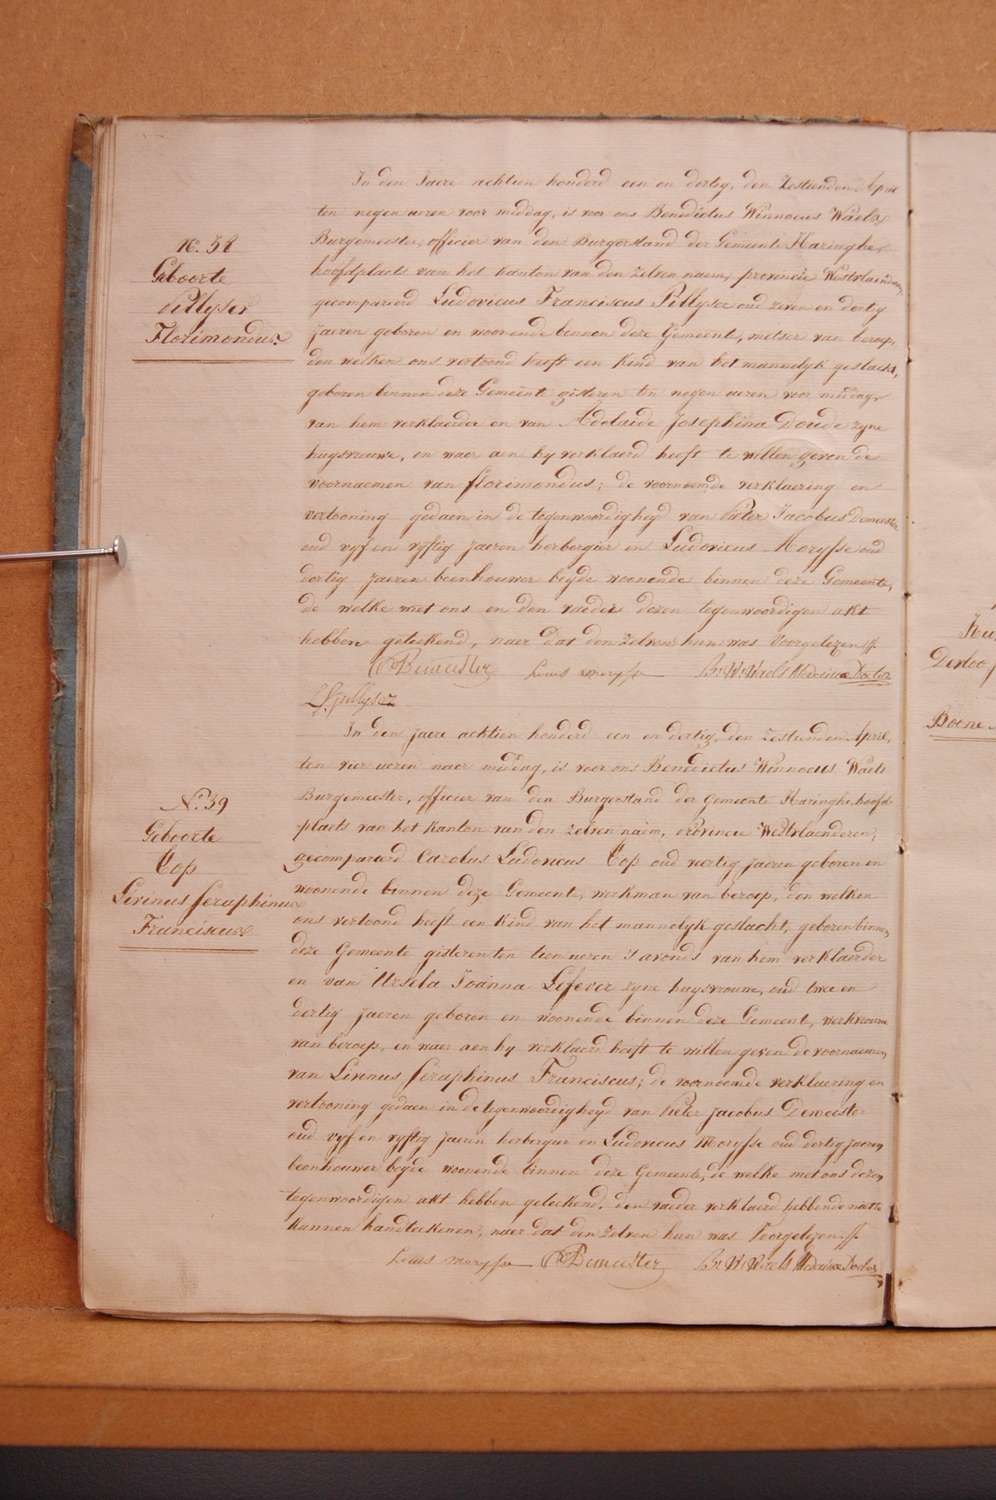 In den Jaere achtien honderd een en dertig, den Zestienden April
ten negen uren voor middag, is voor ons Benedictus Winnocus Waels
Burgemeester, officier van den Burgerstand der Gemeente Haringhe,
hoofdplaets van het kanton van den zelven naem, provincie Westvlaenderen,
N. 38
Geboorte
Pillyser
Florimondus.
gecompareerd Ludovicus Franciscus Pillyser oud zeven en dertig
jaeren geboren en woonende binnen deze Gemeente, metser van beroep,
den welken ons vertoond heeft een kind van het mannelyk geslacht,
geboren binnen deze Gemeente gisteren ten negen uren voor middag,
van hem verklaerder en van Adelaide Josephina Doude zyne
huysvrouwe, en waer aen hy verklaerd heeft te willen geven de
voornaemen van florimondus; de voornoemde verklaering en
vertooning gedaen in de tegenwoordigheyd van Pieter Jacobus Demeester
oud vyf en vyftig jaeren herbergier en Ludovicus Morysse oud
dertig jaeren beenhouwer beyde woonende binnen deze Gemeente,
de welke met ons en den vaeder dezen tegenwoordigen akt
hebben geteekend, naer dat den zelven hun was Voorgelezen
Demeester Louis morysse Be Wi Waels Medecinae Doctor
L F pillyser
In den jaere achtien honderd een en dertig, den Zestienden April,
ten vier uren naer middag, is voor ons Benedictus Winnocus Waels
Burgemeester, officier van den Burgerstand der Gemeente Haringhe, hoofd-
plaets van het Kanton van den zelven naem, provincie Westvlaenderen,
N.° 39
Geboorte
Top
Livinus Seraphinus
Franciscus
gecompareerd Carolus Ludovicus Top oud veertig jaeren geboren en
woonende binnen deze Gemeente, werkman van beroep, den welken
ons vertoond heeft een Kind van het mannelyk geslacht, geboren binnen
deze Gemeente gisteren ten tien uren s'avonds van hem verklaerder
en van Ursela Joanna Lefever zyne huysvrouwe, oud twee en
dertig jaeren geboren en woonende binnen deze Gemeente, werkvrouw
van beroep, en waer aen hy verklaerd heeft te willen geven de voornaemen
van Livinus Seraphinus Franciscus; de voornoemde verklaering en
vertooning gedaen in de tegenwoordigheyd van Pieter Jacobus Demeester
oud vyf en vyftig jaeren herbergier en Ludovicus Morysse oud dertig jaeren
beenhouwer beyde woonende binnen deze Gemeente, de welke met ons dezen
tegenwoordigen akt hebben geteekend. den vaeder verklaerd hebbende niet te
kunnen handteekenen, naer dat den zelven hun was Voorgelezen
Louis morysse Demeester Be Wi Waels Medecinae Doctor